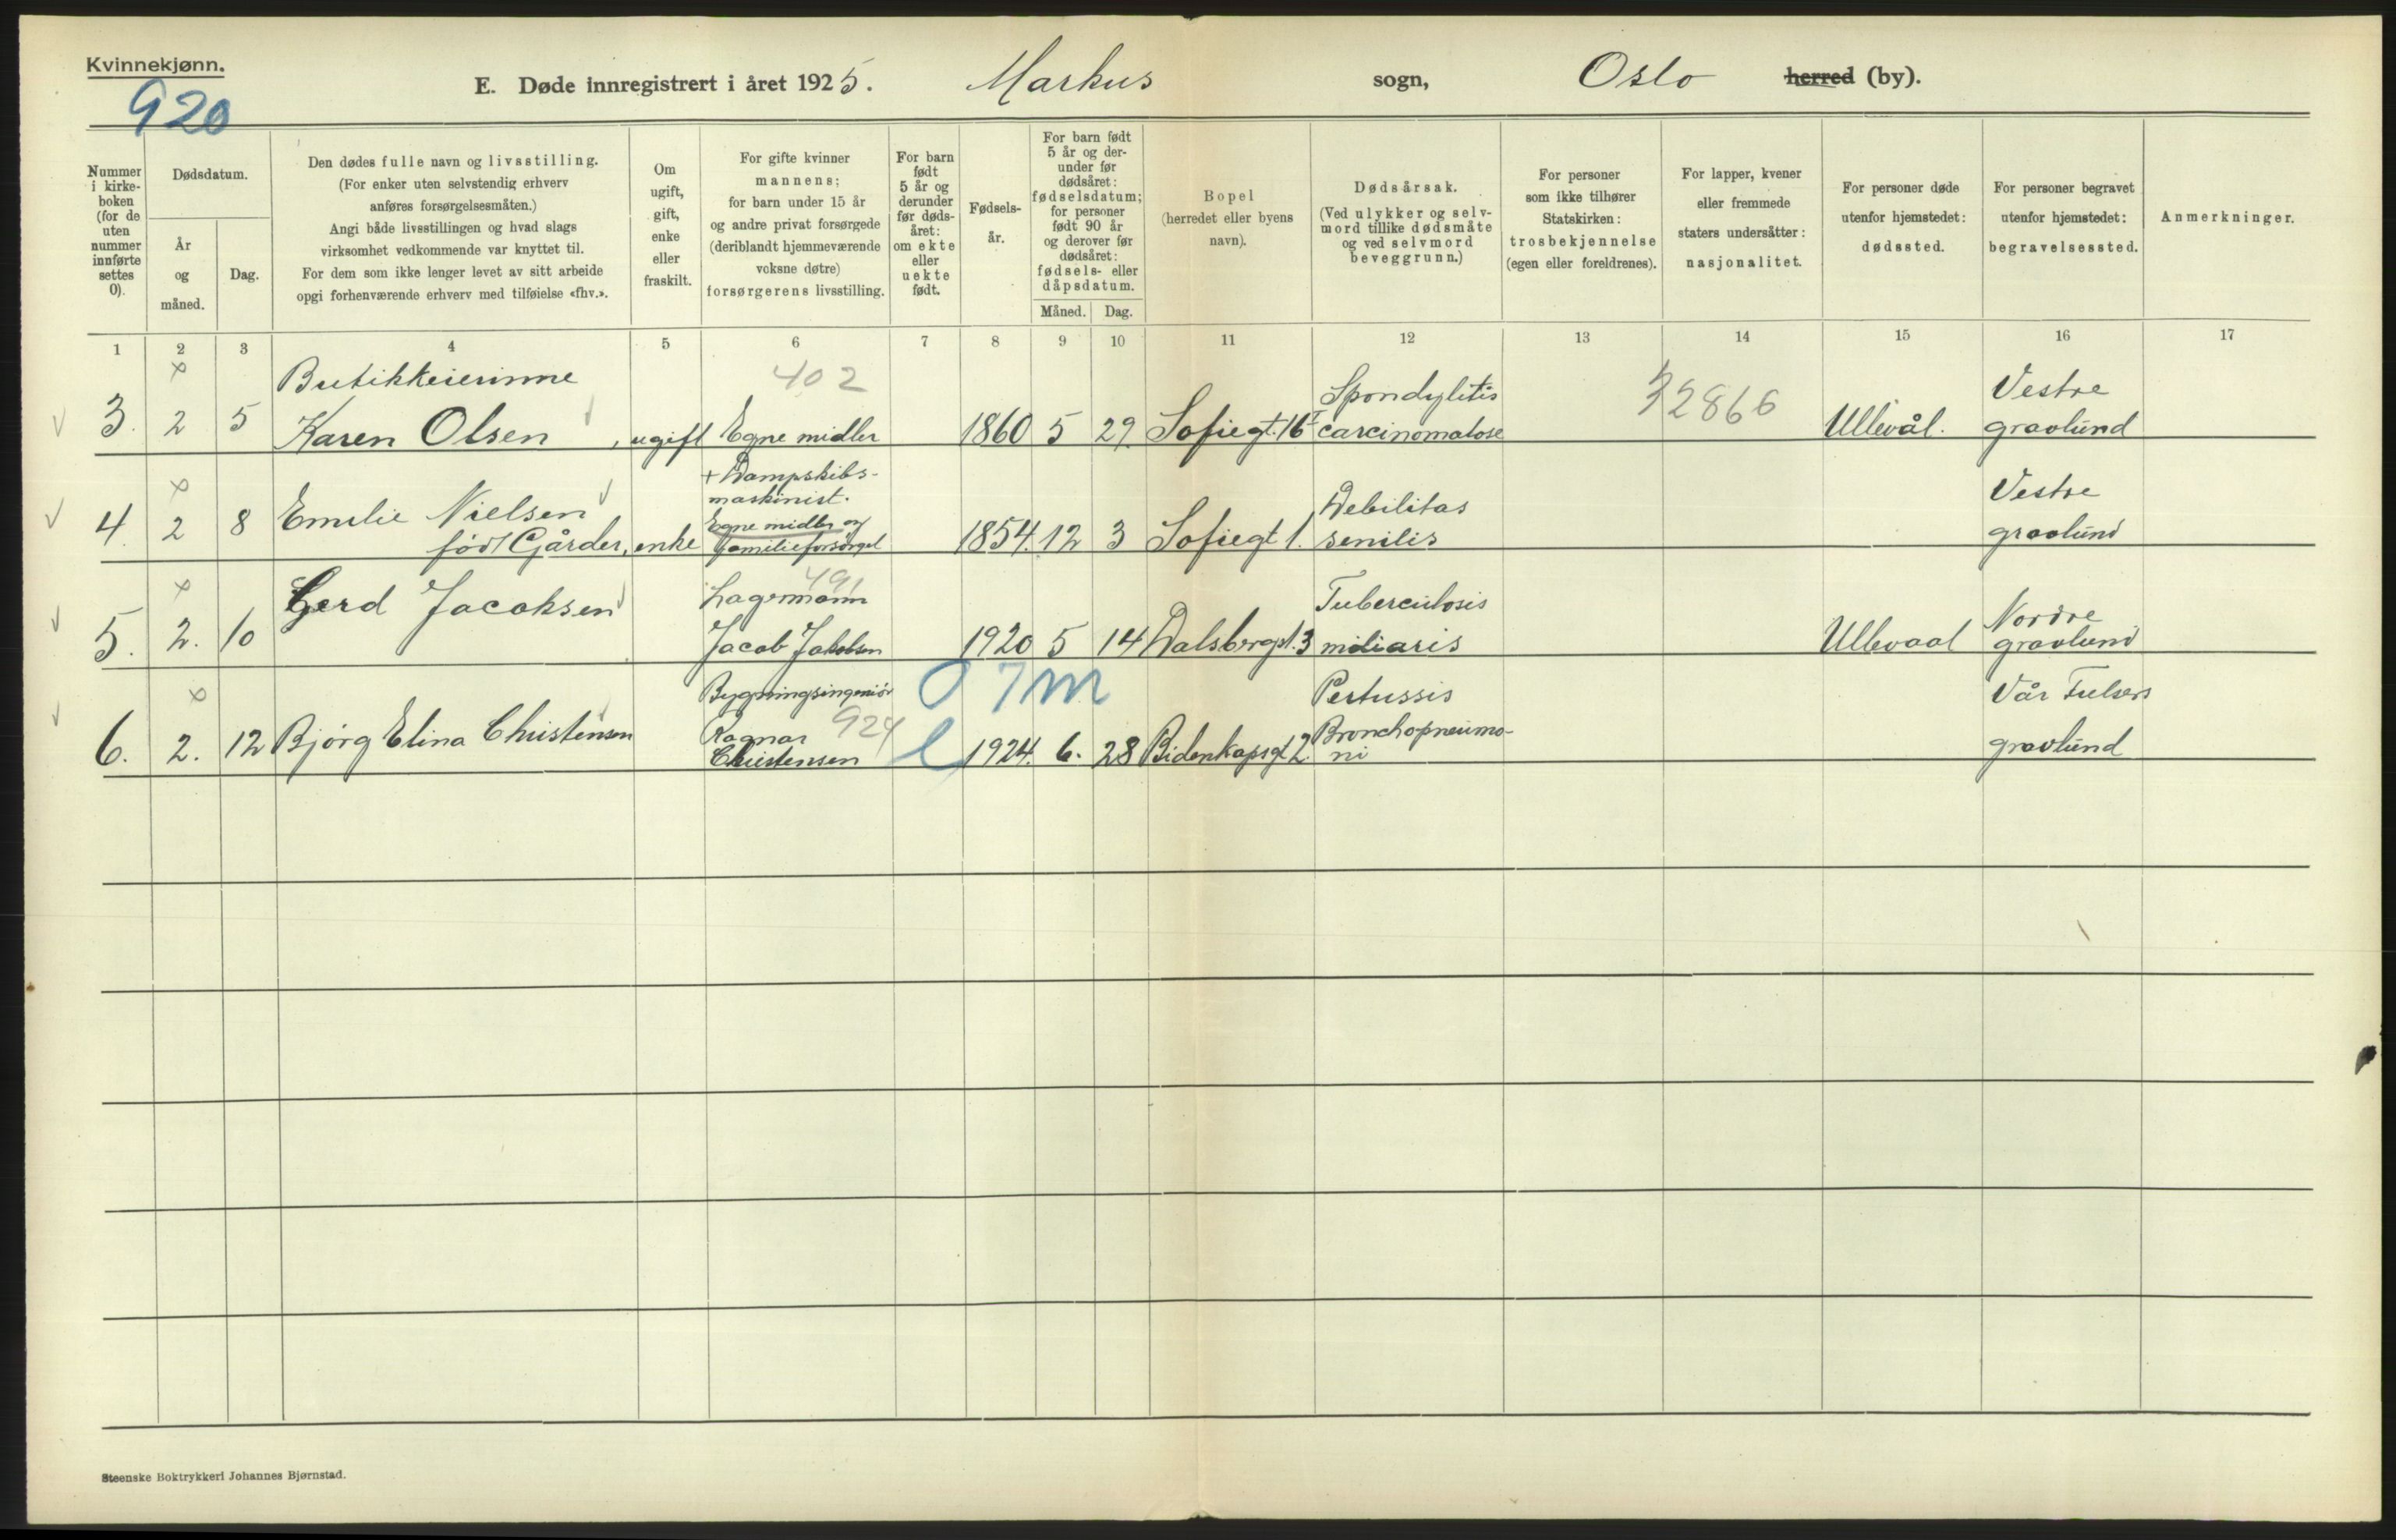 Kvinnekjønn.
920
E. Døde innregistrert i året 1925. Markus sogn, Oslo herred (by).
Nummer i kirke- boken (for de uten nummer innførte settes 0).
Dødsdatum.
År og måned.
Dag.
Den dødes fulle navn og livsstilling.
(For enker uten selvstendig erhverv
anføres forsørgelsesmåten.)
Angi både livsstillingen og hvad slags
virksomhet vedkommende var knyttet til.
For dem som ikke lenger levet av sitt arbeide
opgi forhenværende erhverv med tilføielse «fhv.».
Om
ugift,
gift,
enke
eller
fraskilt.
For gifte kvinner
mannens;
for barn under 15 år
og andre privat forsørgede
(deriblandt hjemmeværende
voksne døtre)
forsørgerens livsstilling.
For barn
født
5 år og
derunder
før døds-
året:
om ekte
eller
uekte
født.
Fødsels-
år.
For barn født
5 år og der-
under før
dødsåret:
fødselsdatum;
for personer
født 90 år
og derover før
dødsåret:
fødsels- eller
dåpsdatum.
Måned. Dag.
Bopel
(herredet eller byens
navn).
Dødsårsak.
(Ved ulykker og selv-
mord tillike dødsmåte
og ved selvmord
beveggrunn.)
For personer
som ikke tilhører
Statskirken:
trosbekjennelse
(egen eller foreldrenes).
For lapper, kvener
eller fremmede
staters undersåtter:
nasjonalitet.
For personer døde
utenfor hjemstedet:
dødssted.
For personer begravet
utenfor hjemstedet:
begravelsessted.
Anmerkninger.
1 2 3 4 5 6 7 8 9 10 11 12 13 14 15 16 17
Butikkeierinne 402 Spondylitis 32866 Vestre
3. 2 5 Karen Olsen, ugift Egne midler 1860 5 29. Sofiegt. 16 carcinomatose Ullevål. gravlund
+ Dampskibs-
maskinist.
Emilie Nielsen Debilitas Vestre
4. 2 8 født Gårder, enke Egne midler og
familieforsørget 1854. 12 3 Sofiegt 1. senilis gravlund
Gerd Jacobsen Lagermann 491 Tuberculosis Nordre
5. 2. 10 Jacob Jakobsen 1920 5 14 Dalsbergst. 3 miliaris Ullevaal gravlund
Bygningsingeniør 0 7m Pertussis Vår Frelsers
6. 2. 12 Bjørg Elina Christensen Ragnar 924
Christensen 1924. 6. 28 Bidenkapsgt 2. Bronchopneumo-
ni gravlund
Steenske Boktrykkeri Johannes Bjørnstad.